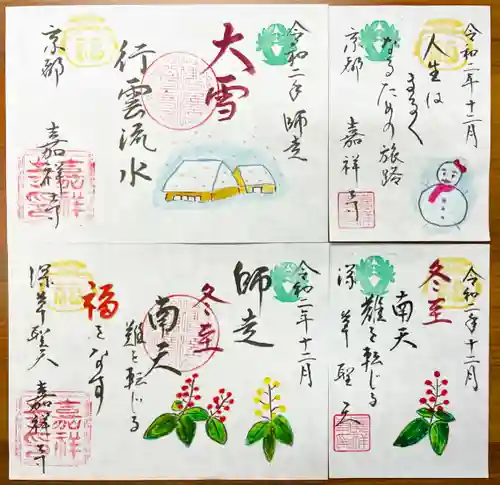 令和二年 師走
大雪
行雲流水
京都 嘉祥寺
嘉祥
福
令和二年十二月
人生は
まるく
なるための旅路
京都 嘉祥寺
令和二年十二月
師走
冬至
南天
難を転じる
福となす
深草聖天 嘉祥寺
嘉祥
福
令和二年十二月
冬至
南天
難を転じる
深草聖天